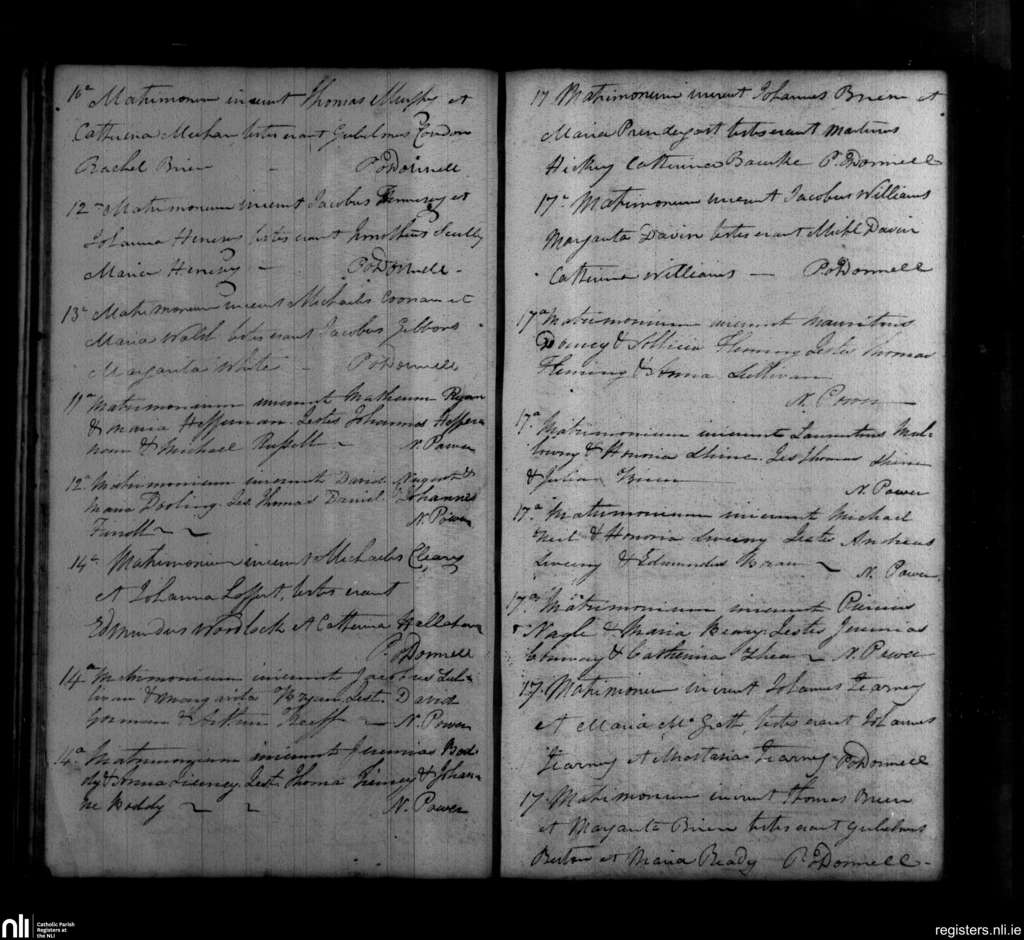 10a Matrimonium inierunt Thomas Murphy et
Catherina Mechan testes erant Gulielmus Condon
Rachel Brien - P. O'Donnell
12a Matrimonium inierunt Jacobus et
Johanna testes erant Timotheus Scully
Maria Henesy - P. O'Donnell
13a Matrimonium inierunt Michaelis Coonan et
Maria Walsh testes erant Jacobus Gibbons
Margarita White - P. O'Donnell
11a Matrimonium inierunt Matheum Ryan
& Maria Heffernan. Testes Johannas Heffer
nan & Michael Russell ~ N. Power
12a Matrimonium inierunt David &
Maria Dooling. Tes Thomas Daniel & Johannes
N. Power
~ ~
14a Matrimonium inierunt Michaelis Cleary
et Johanna testes erant
Edmundus Woodlock et Catherina Hallohan
P. O'Donnell
14a Matrimonium inierunt Jacobus Sul-
livan & Margarita Ryan Test. David
& ~ N. Power
14a Matrimonium inierunt Jeremias Bod
dy & Anna Tierney Test. Thoma Tierney & Johan-
ne Boddy ~ ~ N. Power
17 Matrimonium inierunt Johannes Brien et
Maria Prendergast testes erant Martinus
Hickey Catherina Bourke P. O'Donnell
17a Matrimonium inierunt Jacobus Williams
Margarita Davin testes erant Michl Davin
Catherina Williams — P. O'Donnell
17a Matrimonium inierunt Mauritius
& Fleming Testes Thomas
Fleming & Anna Sullivan
N. Power
17a Matrimonium inierunt Laurentius Mul-
& Honoria Shine. Tes Thomas Shine
& Julia Brien
N. Power
17a Matrimonium inierunt Michael
Neil & Honoria Testes Andreas
& Edmundus ~ N. Power
17a Matrimonium inierunt Piercius
Nagle & Maria Testes Jeremias
& Catherina Shea ~ N. Power
17. Matrimonium inierunt Johannes Kearney
et Maria McGrath, testes erant Johannes
Kearney et Anastasia Kearney P. O'Donnell
17. Matrimonium inierunt Thomas Brien
et Margarita Brien testes erant Gulielmus
et Maria Ready P. O'Donnell -
nli Catholic Parish
Registers at
the NLI
registers.nli.ie